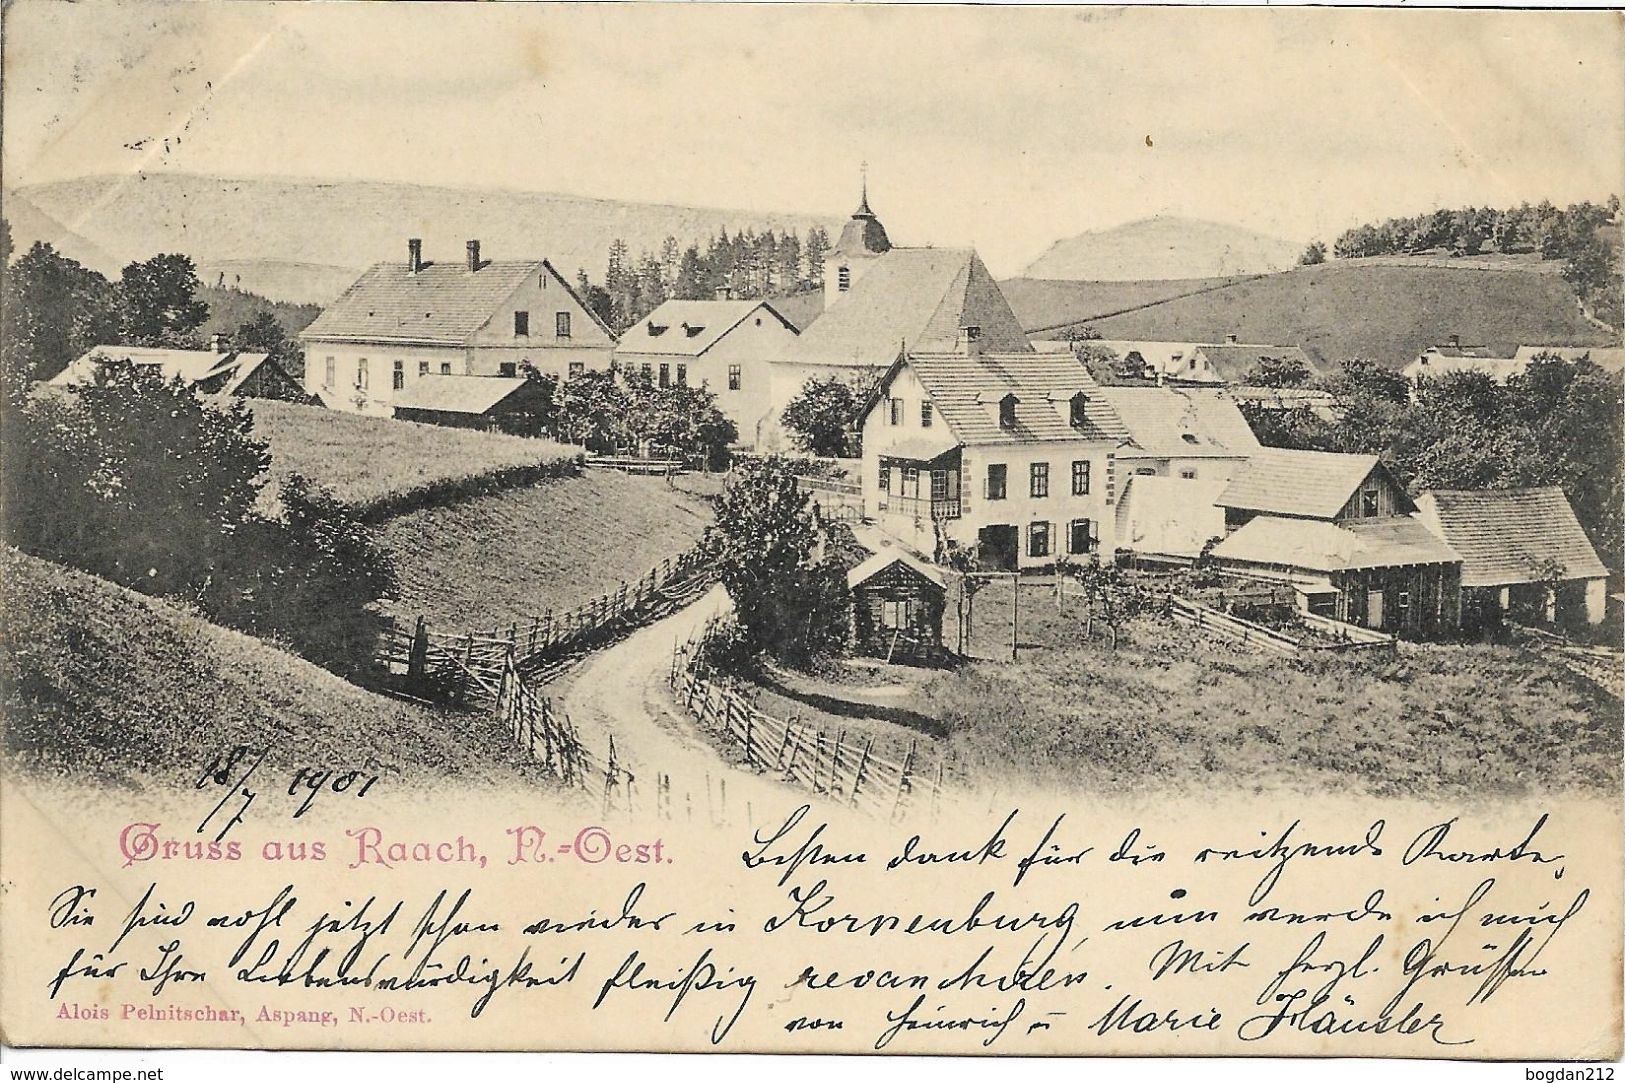 18/7 1901
Gruss aus Raach, N.-Oest.
Besten dank für die reitzende Karte,
Sie sind wohl jetzt schon wieder in Korneuburg, nun werde ich mich
für Ihre Liebenswürdigkeit fleißig revanchiren. Mit herzl. Grüssen
Alois Pelnitschar, Aspang, N.-Oest.
von Heinrich u Marie Häusler
www.delcampe.net
bogdan212